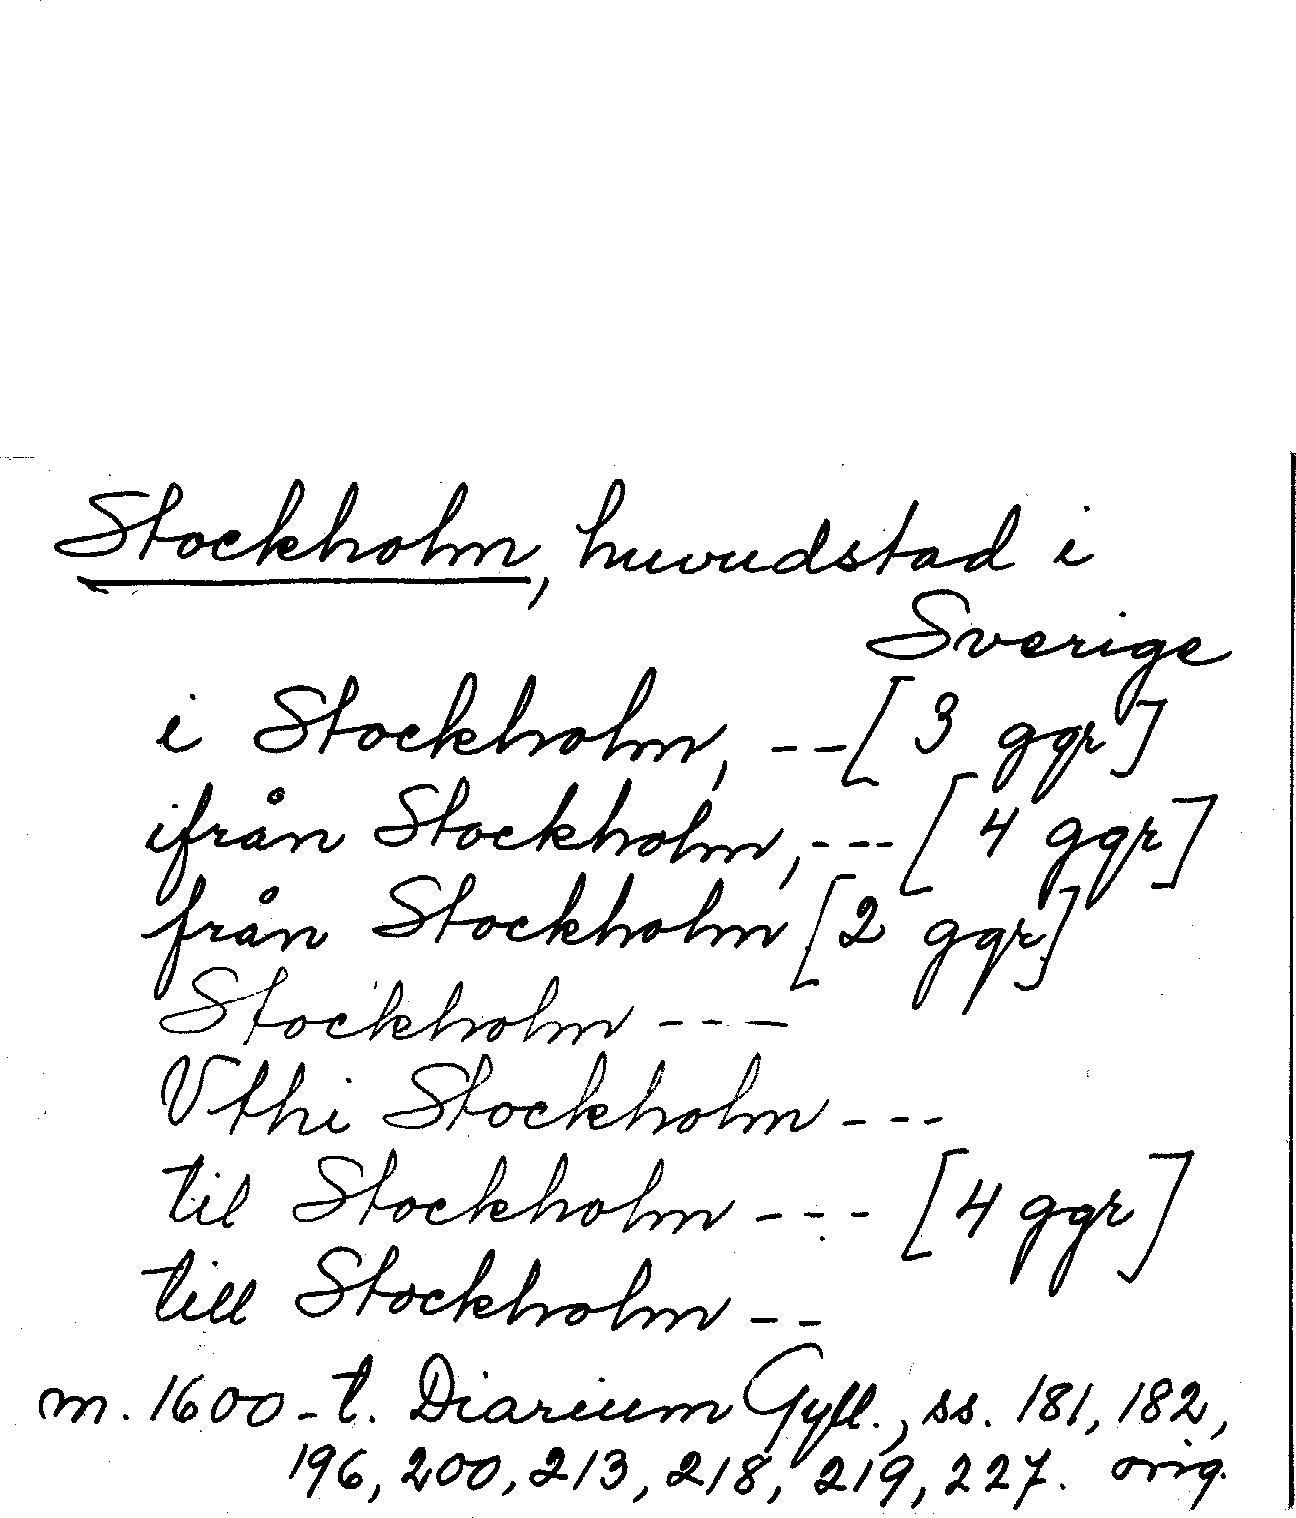 Stockholm, huvudstad i
Sverige
i Stockholm, --[3 ggr]
ifrån Stockholm, --- [4 ggr]
från Stockholm [2 ggr]
Stockholm ---
Vthi Stockholm ---
til Stockholm --- [4 ggr]
till Stockholm --
m. 1600-t. Diarium Gyll., ss. 181, 182,
196, 200, 213, 218, 219, 227. orig.